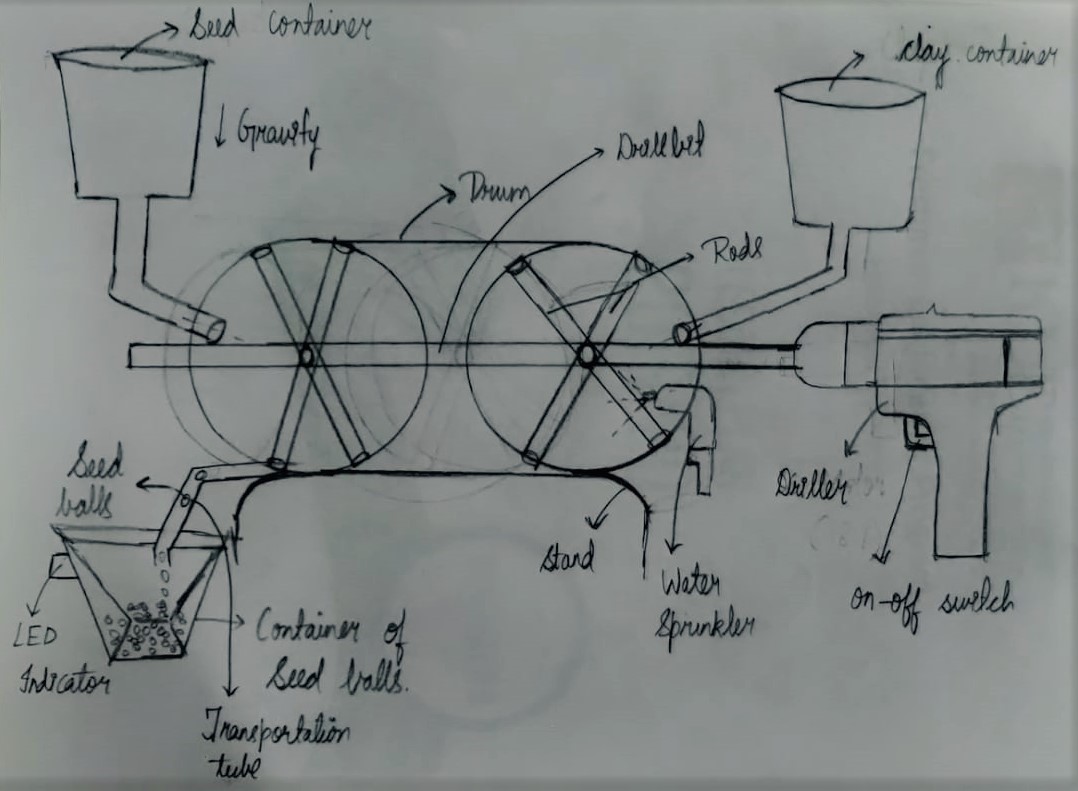 Seed container
clay container
Gravity
Drill bit
Drum
Rods
Seed
balls
Driller
Stand
Water
Sprinkler
on-off switch
LED
Indicator
Container of
Seed balls.
Transportation
tube